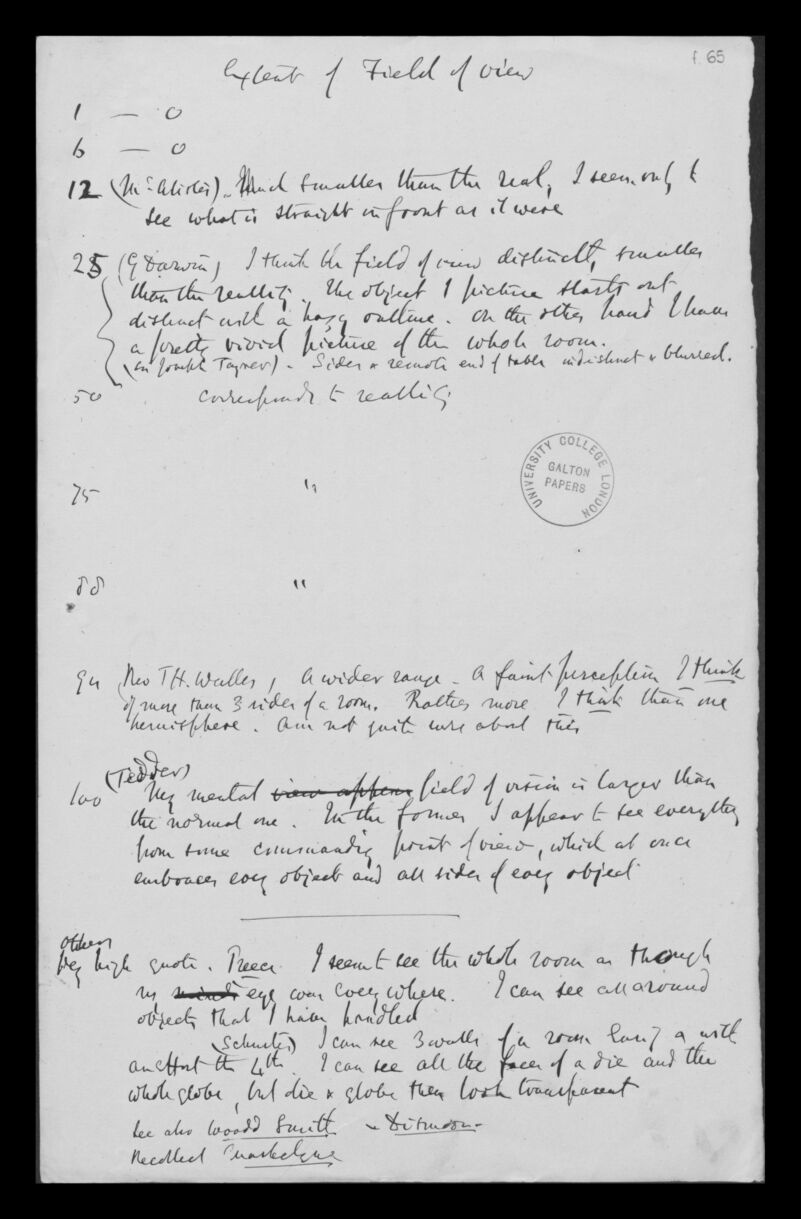 f. 65
Extent of Field of view
1 — 0
6 — 0
12 (Mc Alister). Much smaller than the real, I seem only to
see what is straight in front as it were
25 (G Darwin) I think the field of view distinctly smaller
than the reality. The object I picture starts out
distinct with a hazy outline. On the other hand I have
a pretty vivid picture of the whole room.
( Joseph ) - Sides & remote end of table indistinct & blurred.
50 corresponds to reality
75 "
88 "
UNIVERSITY COLLEGE LONDON
GALTON
PAPERS
94 Rev T.H. Waller, A wider range - a faint perception I think
of more than 3 sides of a room. Rather more I think than one
hemisphere. Am not quite sure about this
(Tedder)
100 My mental view appears field of vision is larger than
the normal one. In the former I appear to see everything
from some commanding point of view, which at once
embraces every object and all sides of every object
others
Very high quote. Preece I seem to see the whole room as though
my mind's eye was everywhere. I can see all around
objects that I have handled
(Schuster) I can see 3 walls of a room easily & with
an effort the 4th. I can see all the faces of a die and the
whole globe, but die & globe then look transparent
see also Woodd Smith -
Recollect Maskelyne